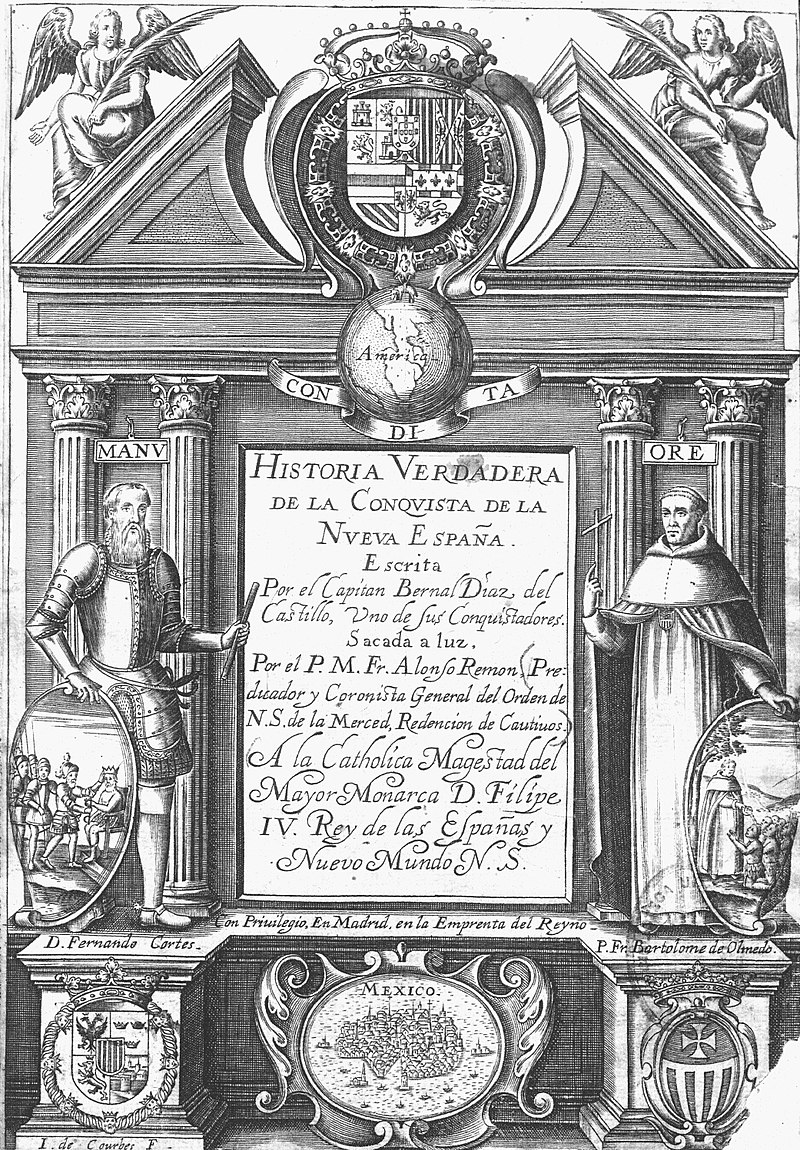 America.
CON DI- TA
MANV
ORE
HISTORIA VERDADERA
DE LA CONQVISTA DE LA
NVEVA ESPAÑA.
Escrita
Por el Capitan Bernal Diaz del
Castillo, Vno de sus Conquistadores.
Sacada a luz,
Por el P. M. Fr. Alonso Remon, Pre-
dicador y Coronista General del Orden de
N. S. de la Merced, Redencion de Cautiuos.
A la Catholica Magestad del
Mayor Monarca D. Filipe
IV. Rey de las Españas y
Nuevo Mundo N. S.
Con Priuilegio, En Madrid, en la Emprenta del Reyno
D. Fernando Cortes.
P. Fr. Bartolome de Olmedo.
MEXICO.
I. de Courbes F.